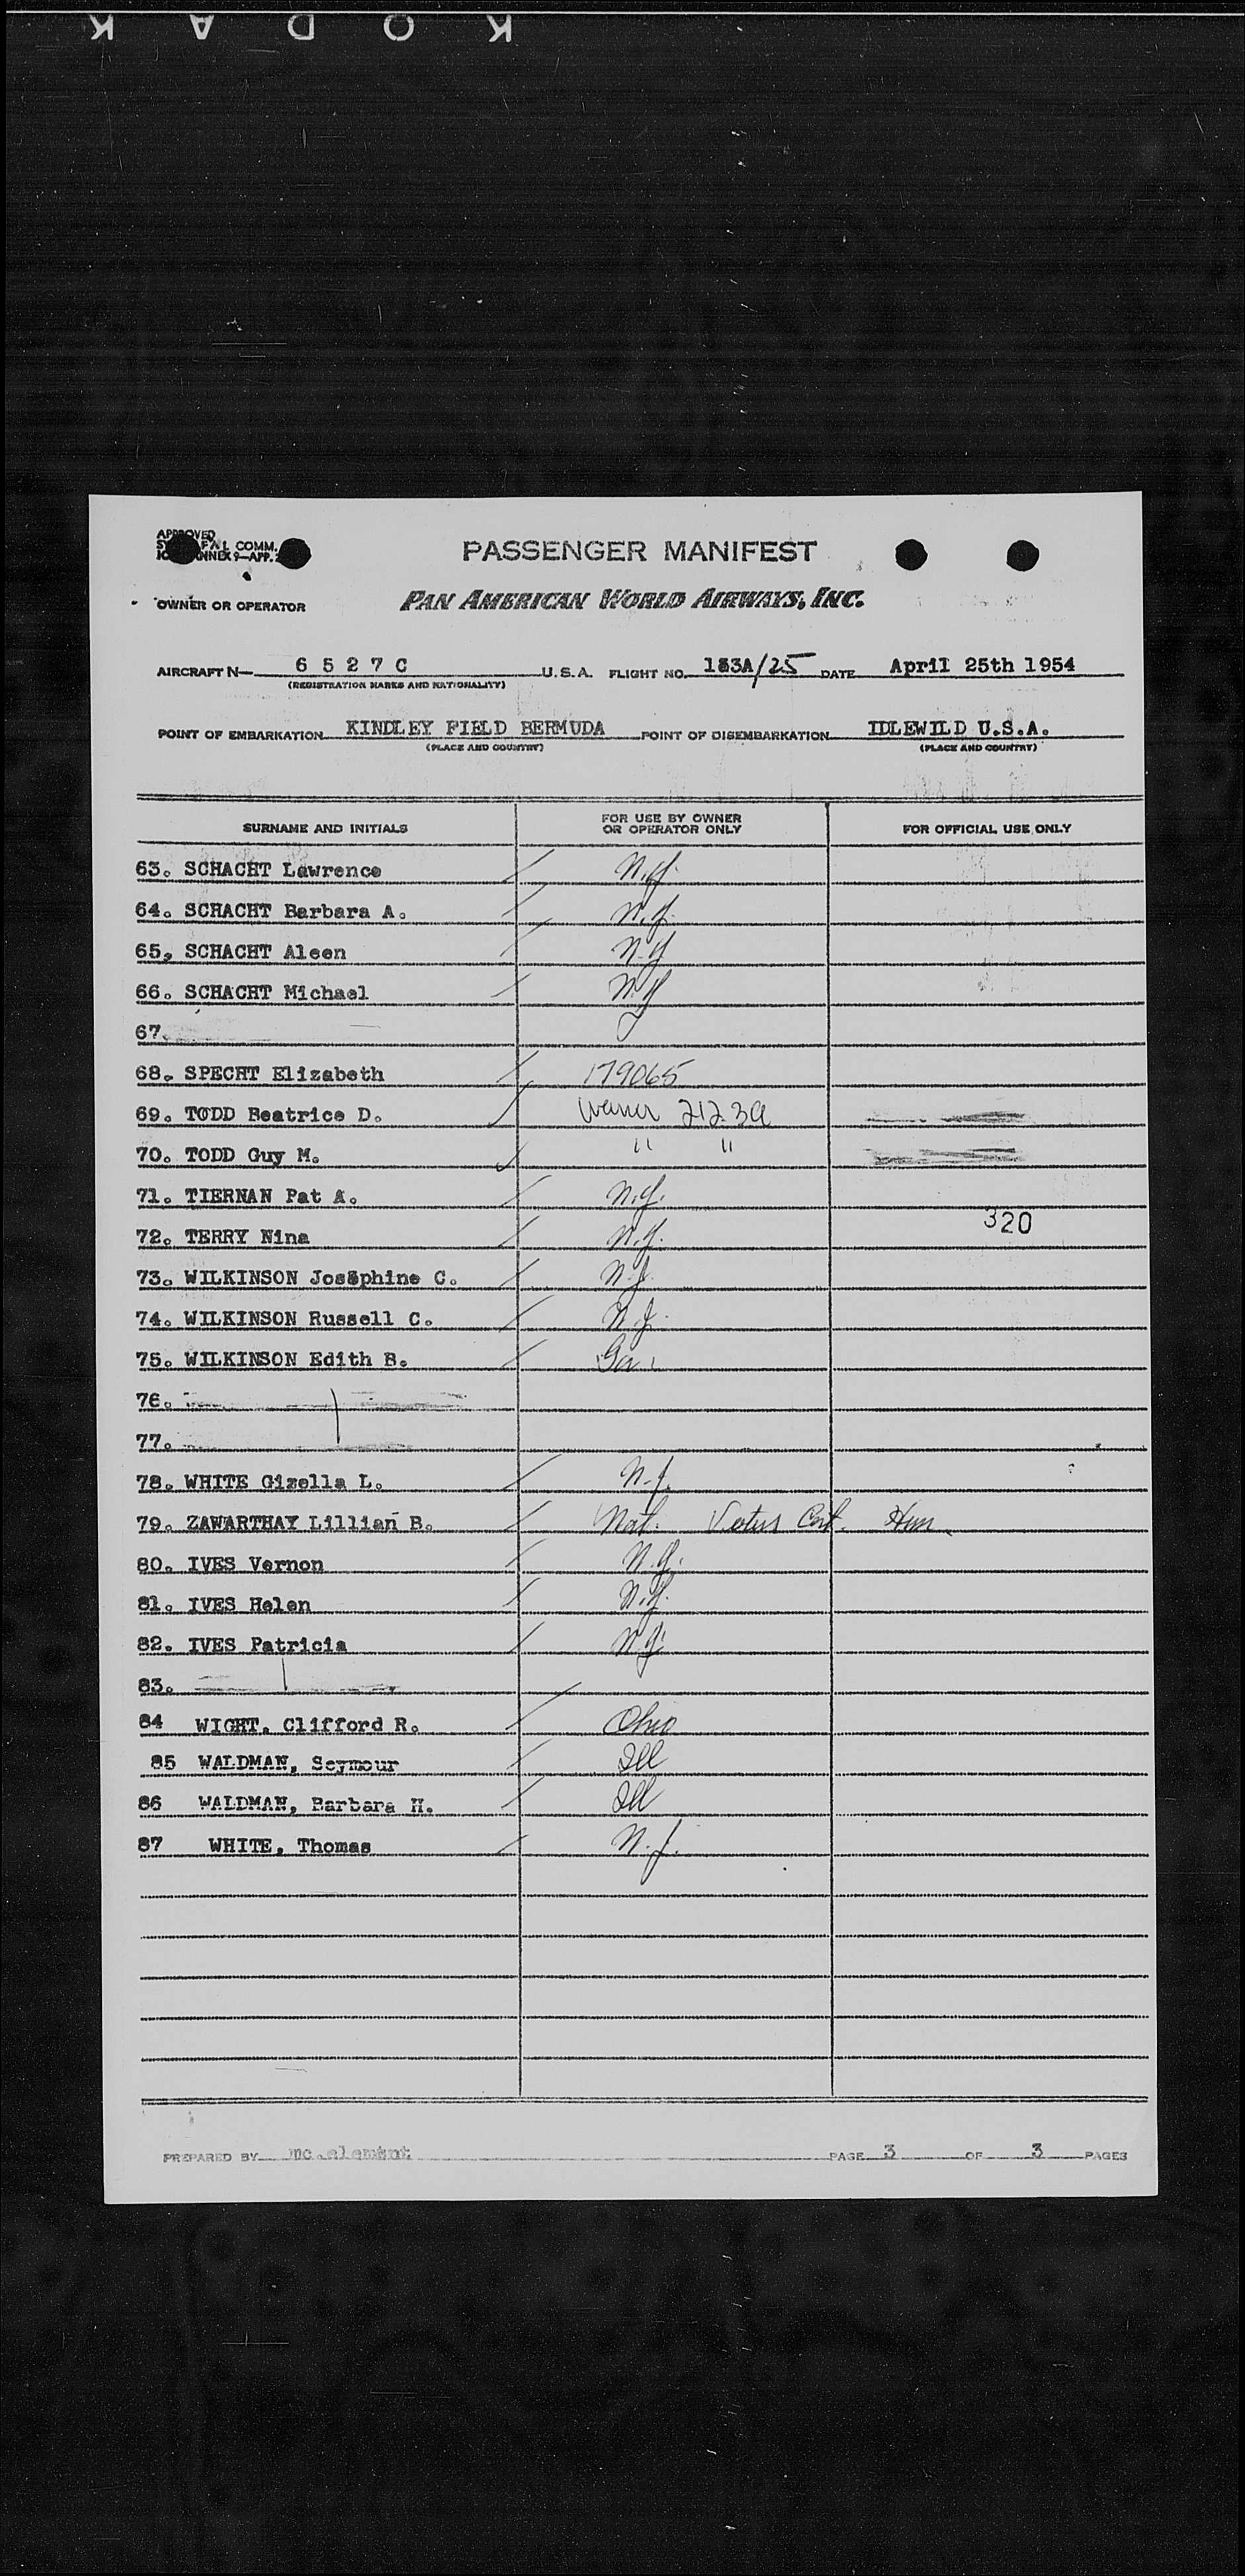 KODAK
APPROVED
COMM.
ANNEX 9—APP.
PASSENGER MANIFEST
OWNER OR OPERATOR PAN AMERICAN WORLD AIRWAYS, INC.
AIRCRAFT N— 6 5 2 7 C U.S.A. FLIGHT NO. 153A/25 DATE April 25th 1954
(REGISTRATION MARKS AND NATIONALITY)
POINT OF EMBARKATION KINDLEY FIELD BERMUDA POINT OF DISEMBARKATION IDLEWILD U.S.A.
(PLACE AND COUNTRY) (PLACE AND COUNTRY)
SURNAME AND INITIALS FOR USE BY OWNER OR OPERATOR ONLY FOR OFFICIAL USE ONLY
63. SCHACHT Lawrence / N.Y.
64. SCHACHT Barbara A. / N.Y.
65. SCHACHT Aleen / N.Y
66. SCHACHT Michael / N.Y
67.
68. SPECHT Elizabeth / 179065
69. TODD Beatrice D. / Waiver 212.3a
70. TODD Guy M. / " "
71. TIERNAN Pat A. / N.Y.
320
72. TERRY Nina / N.Y.
73. WILKINSON Josephine C. / N.J.
74. WILKINSON Russell C. / N.J.
75. WILKINSON Edith B. / Ga.
76.
77.
78. WHITE Gizella L. / N.J.
79. ZAWARTHAY Lillian B. / Nat. Cert. Hun.
80. IVES Vernon / N.Y.
81. IVES Helen / N.Y.
82. IVES Patricia / N.Y.
83.
84 WIGHT, Clifford R. / Ohio
85 WALDMAN, Seymour / Ill
86 WALDMAN, Barbara H. / Ill
87 WHITE, Thomas / N.J.
PREPARED BY mc.element PAGE 3 OF 3 PAGES